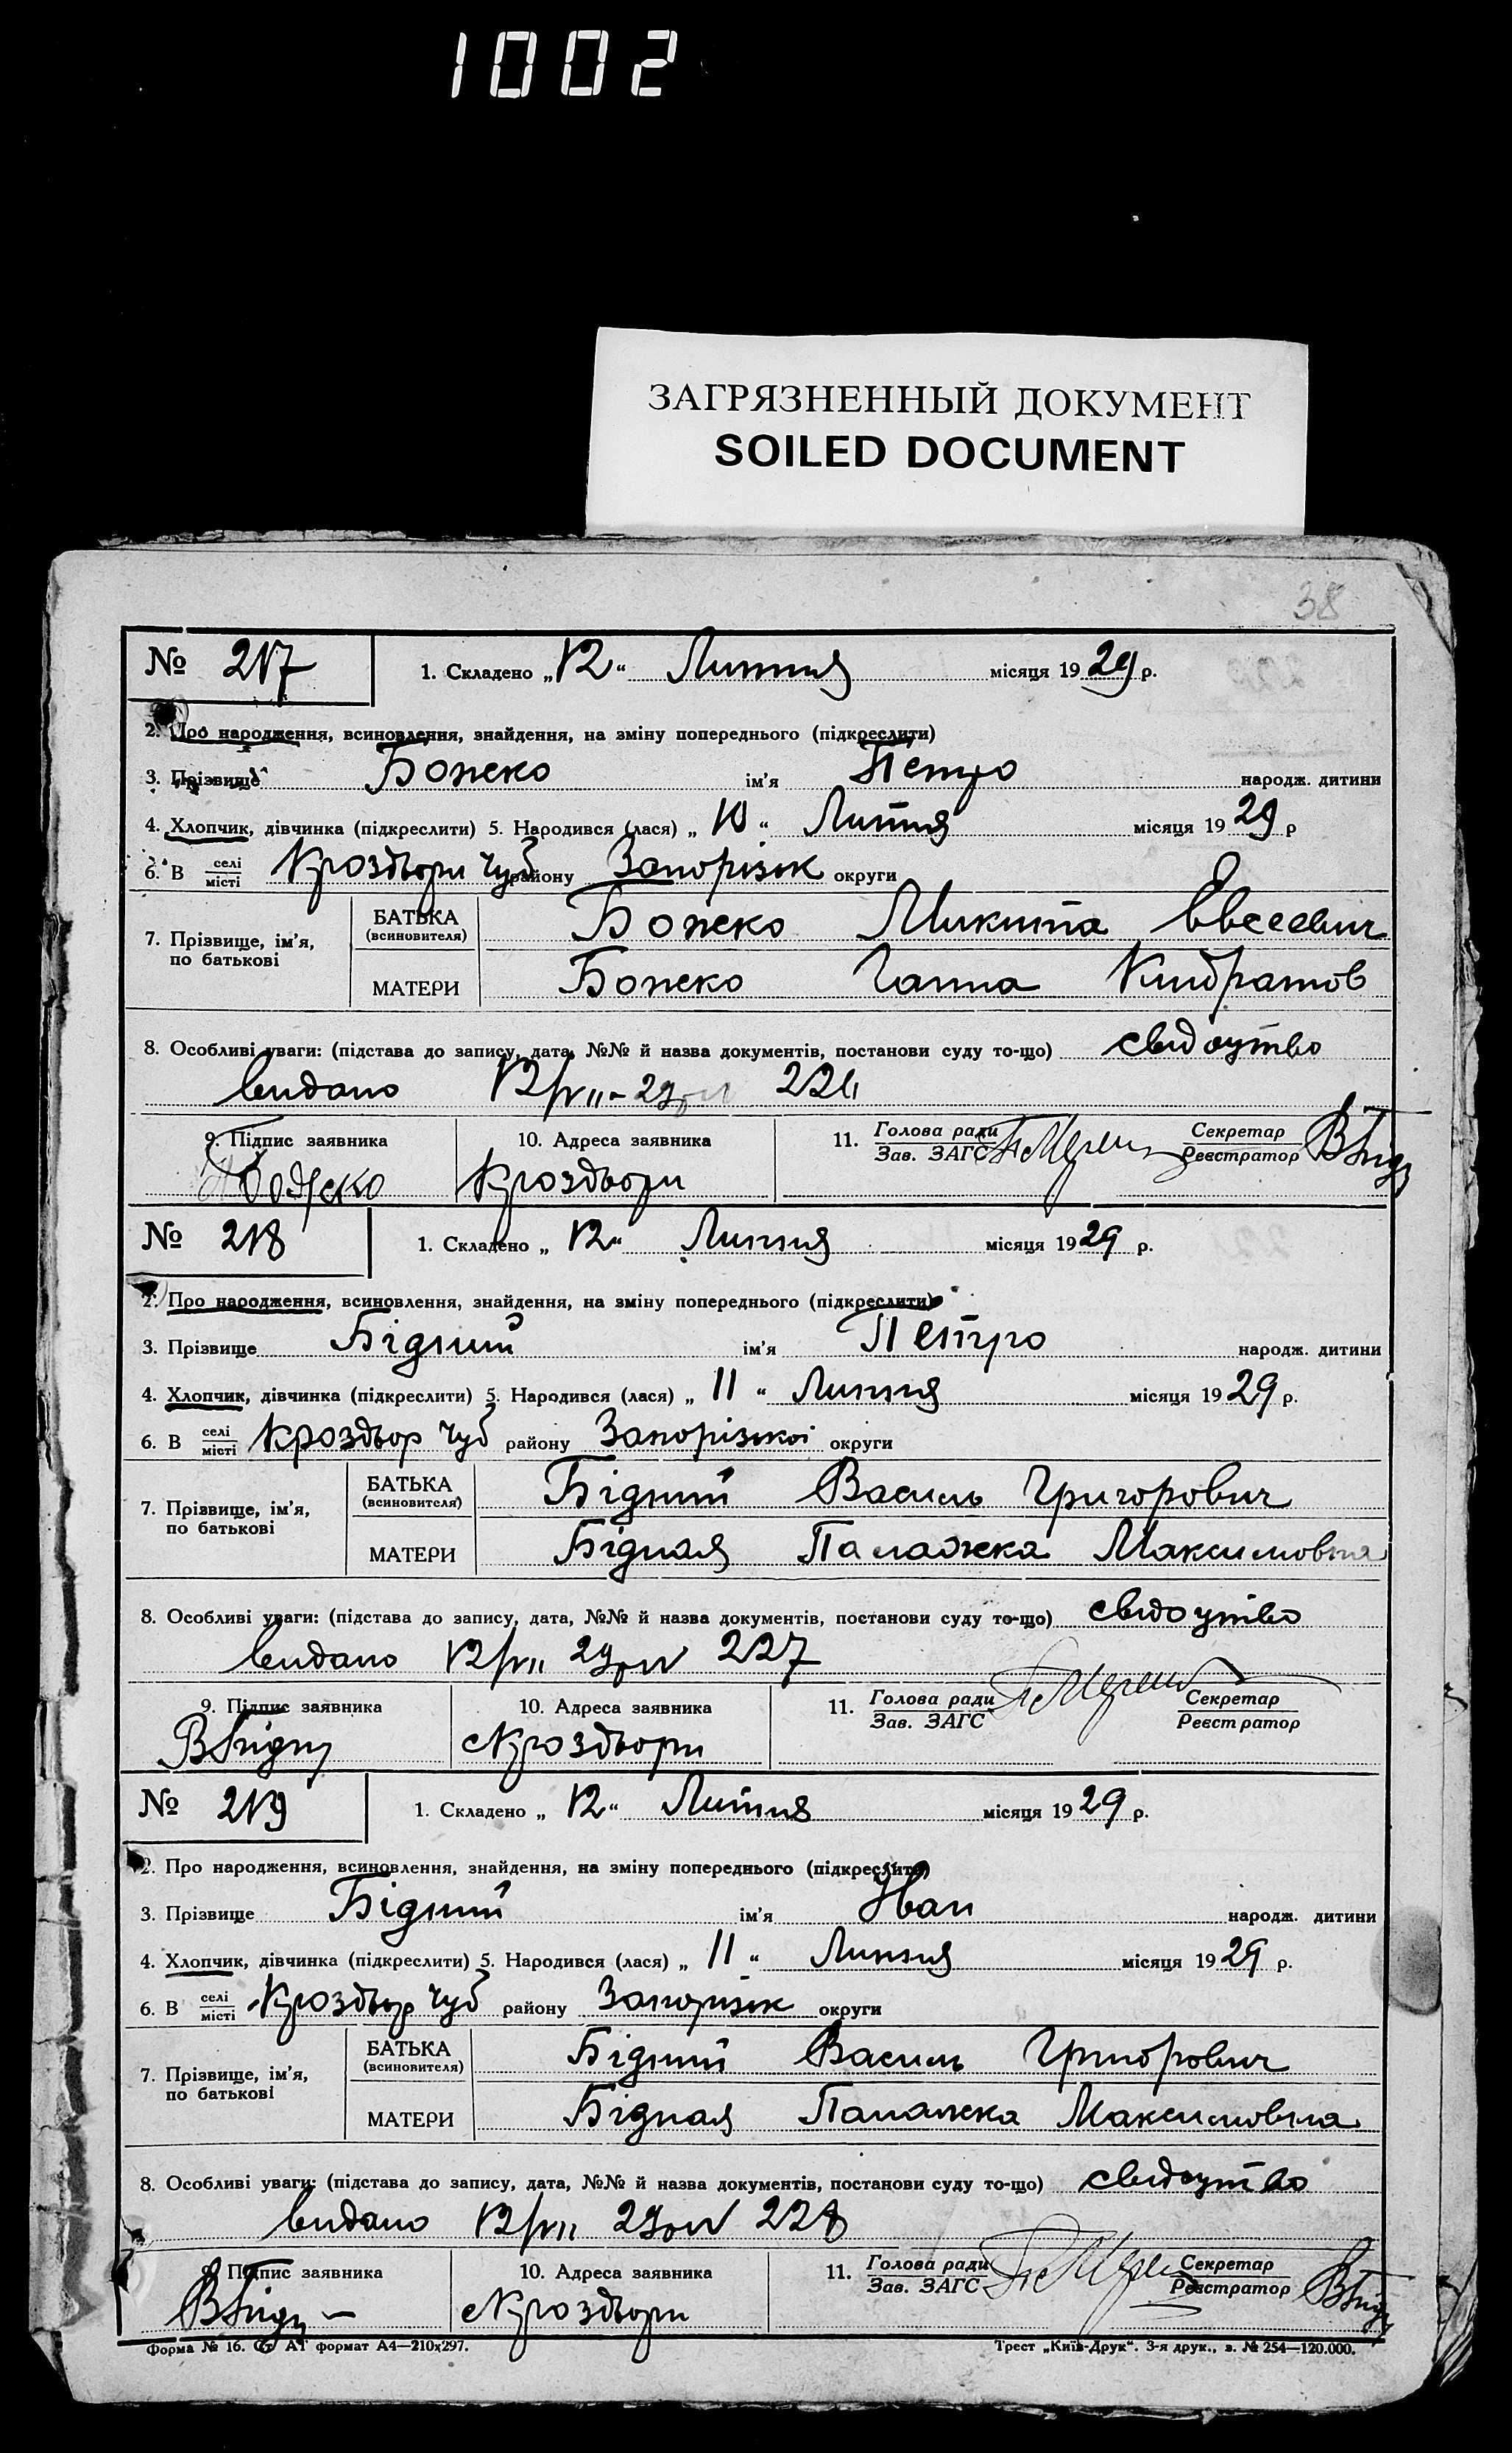 1002
ЗАГРЯЗНЕННЫЙ ДОКУМЕНТ
SOILED DOCUMENT
38
№ 217 1. Складено „12“ Липня місяця 1929 р.
2. Про народження, всиновлення, знайдення, на зміну попереднього (підкреслити)
3. Прізвище Божко ім'я Петро народж. дитини
4. Хлопчик, дівчинка (підкреслити) 5. Народився (лася) „10“ Липня місяця 1929 р
6. В селі місті Кроздвори Чуб району Запорізьк округи
7. Прізвище, ім'я, по батькові БАТЬКА (всиновителя) Божко Микита Евсеевич
МАТЕРИ Божко Ганна Киндратов
8. Особливі уваги: (підстава до запису, дата, №№ й назва документів, постанови суду то-що) свидоцтво
видано 12/VII-29
9. Підпис заявника 10. Адреса заявника 11. Голова ради Зав. ЗАГС Секретар Реєстратор
Божко Кроздвори
№ 218 1. Складено „12“ Липня місяця 1929 р.
2. Про народження, всиновлення, знайдення, на зміну попереднього (підкреслити)
3. Прізвище Бідний ім'я Петро народж. дитини
4. Хлопчик, дівчинка (підкреслити) 5. Народився (лася) „11“ Липня місяця 1929 р.
6. В селі місті Кроздвор Чуб району Запорізької округи
7. Прізвище, ім'я, по батькові БАТЬКА (всиновителя) Бідний Василь Григорович
МАТЕРИ Бідная Палажка Максимовна
8. Особливі уваги: (підстава до запису, дата, №№ й назва документів, постанови суду то-що) свидоцтво
видано 12/VII 29 227
9. Підпис заявника 10. Адреса заявника 11. Голова ради Зав. ЗАГС Секретар Реєстратор
Кроздвори
№ 219 1. Складено „12“ Липня місяця 1929 р.
2. Про народження, всиновлення, знайдення, на зміну попереднього (підкреслити)
3. Прізвище Бідний ім'я Иван народж. дитини
4. Хлопчик, дівчинка (підкреслити) 5. Народився (лася) „11“ Липня місяця 1929 р.
6. В селі місті Кроздвор Чуб району Запорізьк округи
7. Прізвище, ім'я, по батькові БАТЬКА (всиновителя) Бідний Василь Григорович
МАТЕРИ Бідная Палажка Максимовна
8. Особливі уваги: (підстава до запису, дата, №№ й назва документів, постанови суду то-що) свидоцтво
видано 12/VII 29 228
9. Підпис заявника 10. Адреса заявника 11. Голова ради Зав. ЗАГС Секретар Реєстратор
Кроздвори
Форма № 16. Ст. А1 формат А4—210х297. Трест „Київ-Друк“. 3-я друк., з. № 254—120.000.